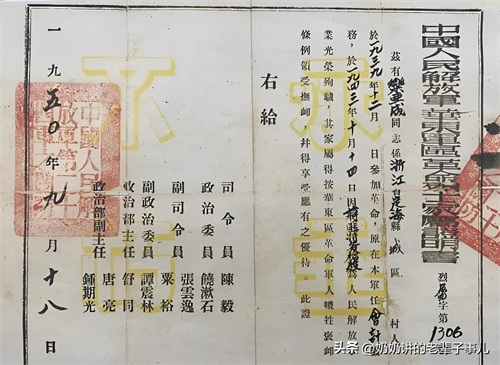 中國人民解放軍華東軍區革命烈士家屬證明書
烈屬字第1306
茲有成同志係浙江省定海縣城區 村
於一九三九年十二月 日參加革命,原在本軍任會計職
務,於一九四三年十月十四日因為人民解放事
業光榮殉職,其家屬得按華東區革命軍人犧牲褒卹
條例領受撫卹,并得享受應有之優待。此證
右給
司令員 陳毅
政治委員 饒漱石
副司令員 張雲逸
粟裕
副政治委員 譚震林
政治部主任 舒同
政治部副主任 唐亮
鍾期光
一九五〇年九月十八日
頭条 @奶奶讲的老辈子事儿